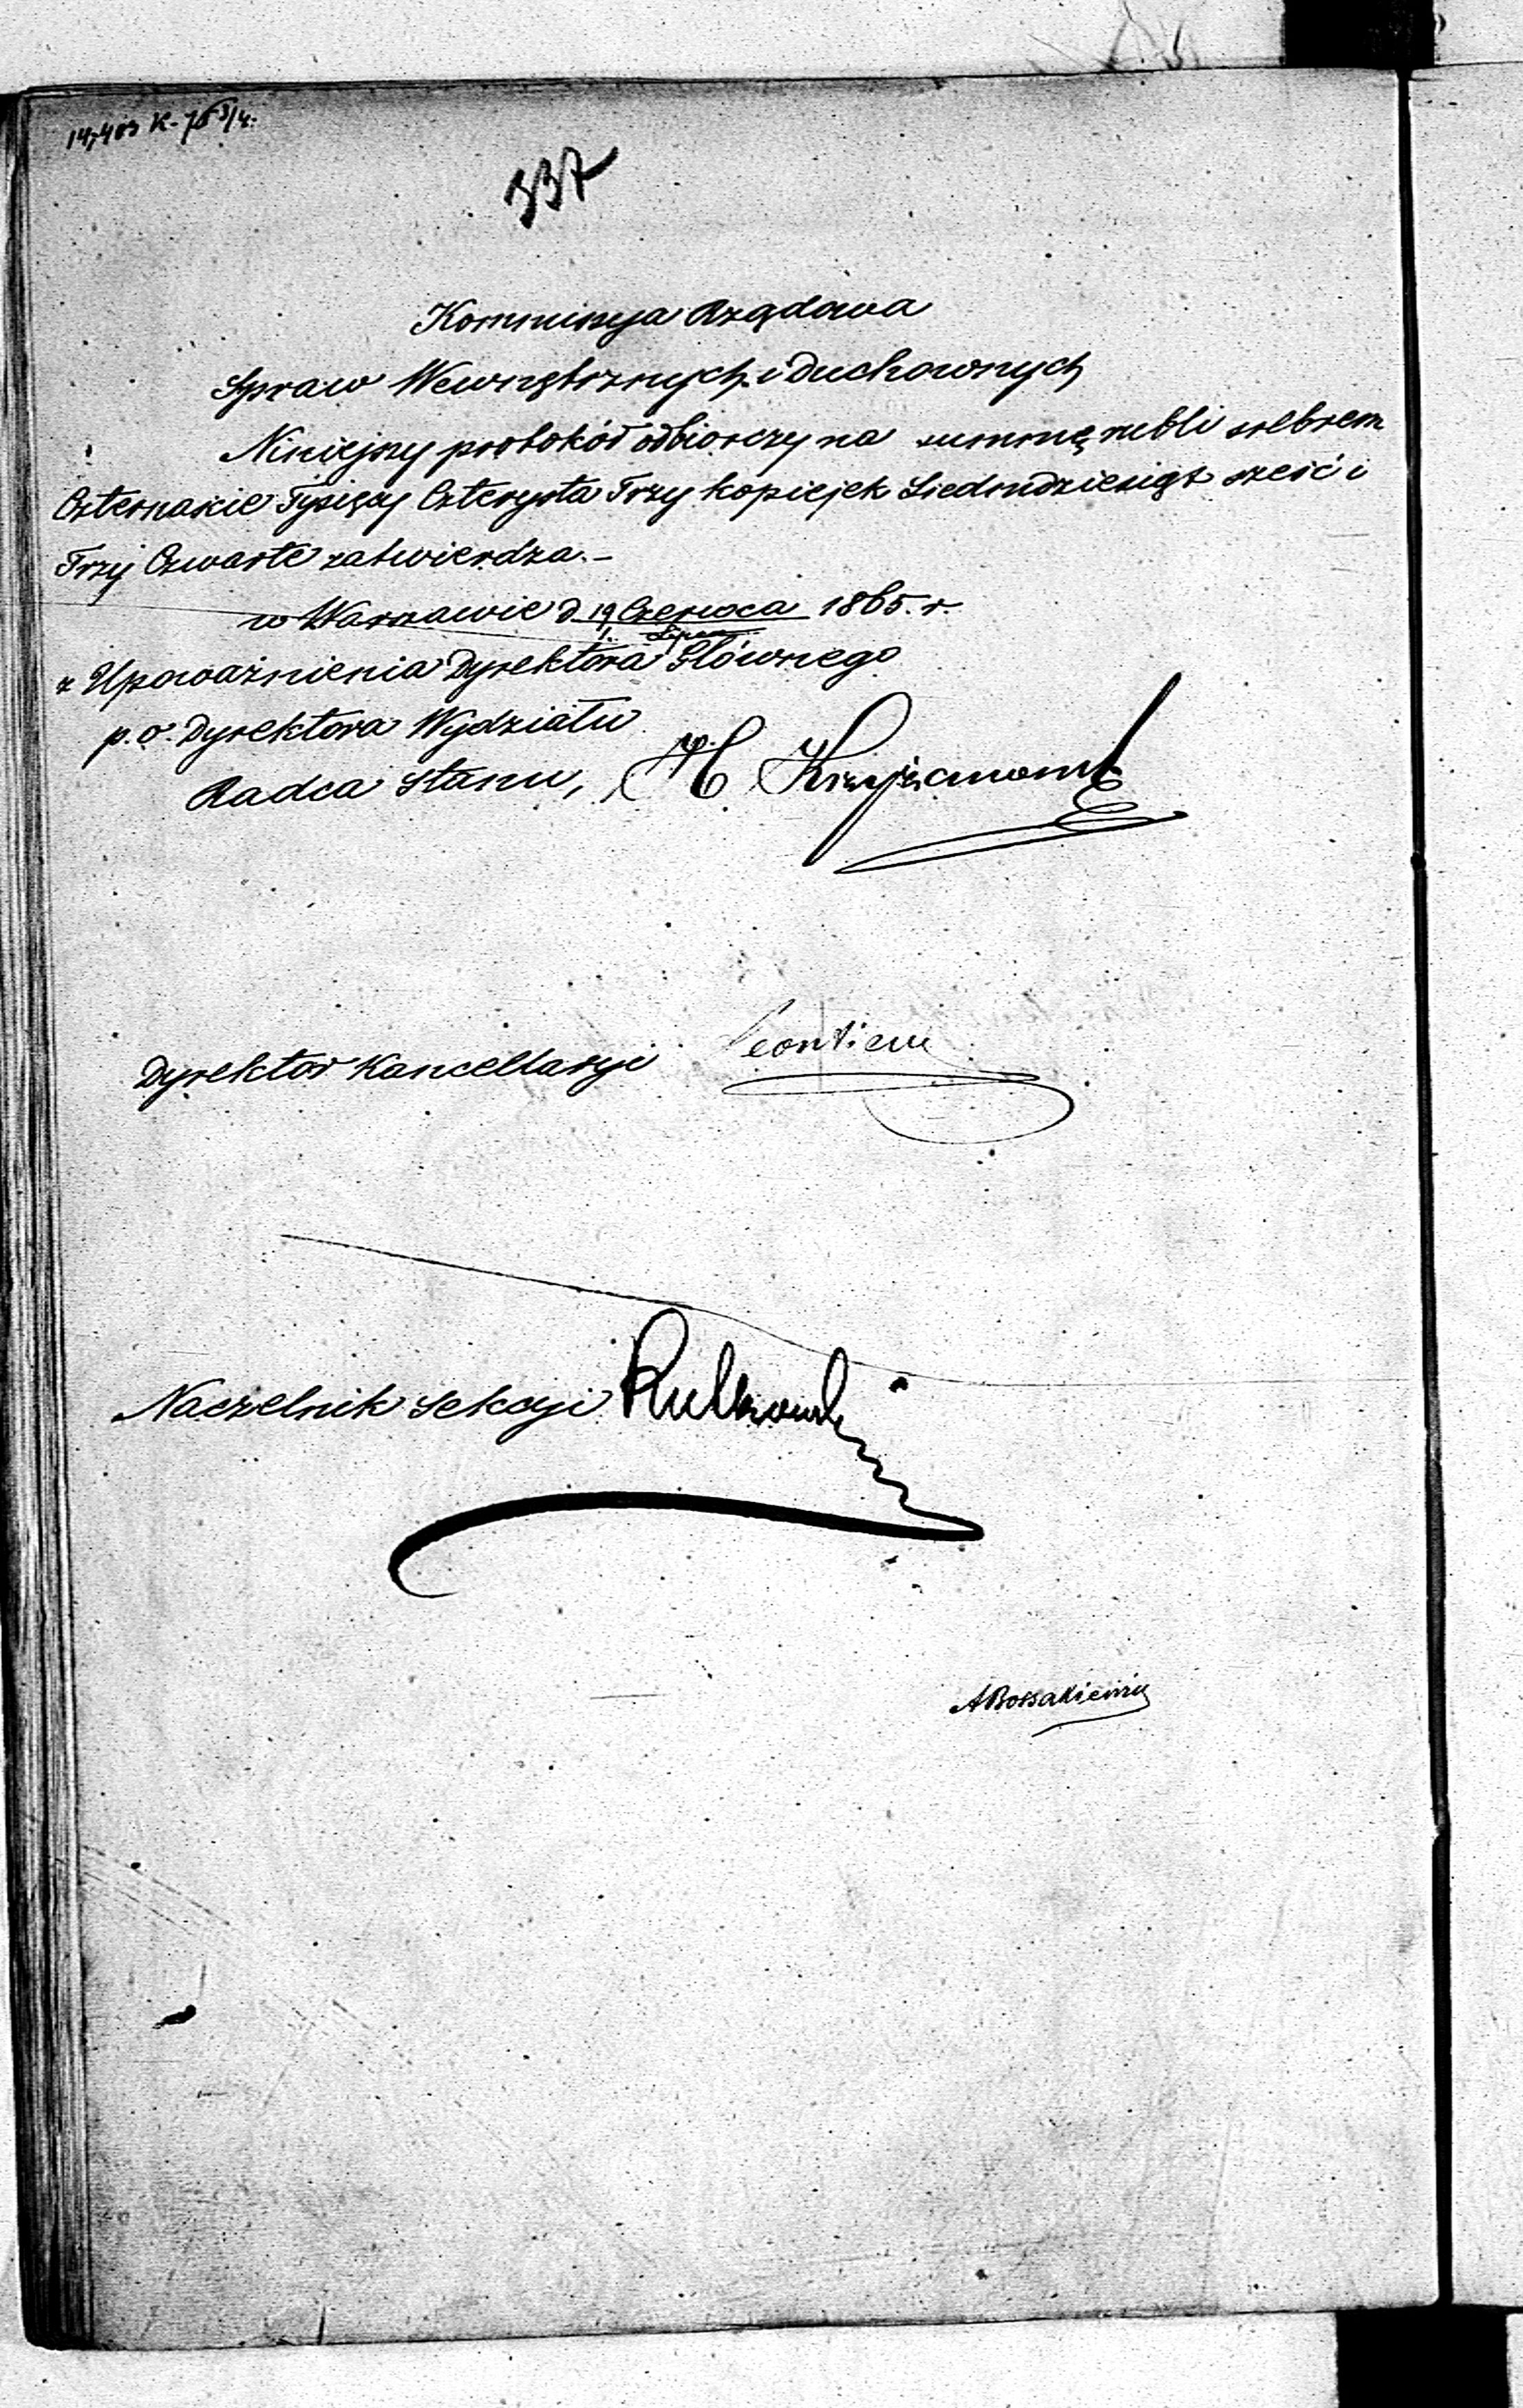 14,403 K. 76 3/4.
337
Kommissya Rządowa
Spraw Wewnętrznych i Duchownych
Niniejszy protokół odbiorczy na summę rubli srebrem
Czternaście Tysięcy Czterysta Trzy kopiejek Siedmdziesiąt sześć i
Trzy Czwarte zatwierdza.-
w Warszawie d. 19 Czerwca 1865. r.
1. Lipca
z Upoważnienia Dyrektora Głównego
p. o. Dyrektora Wydziału
Radca Stanu, H Krzyżanowski
Dyrektor Kancellaryi Leontiew
Naczelnik Sekcyi Rutkowski
ABossakiewicz